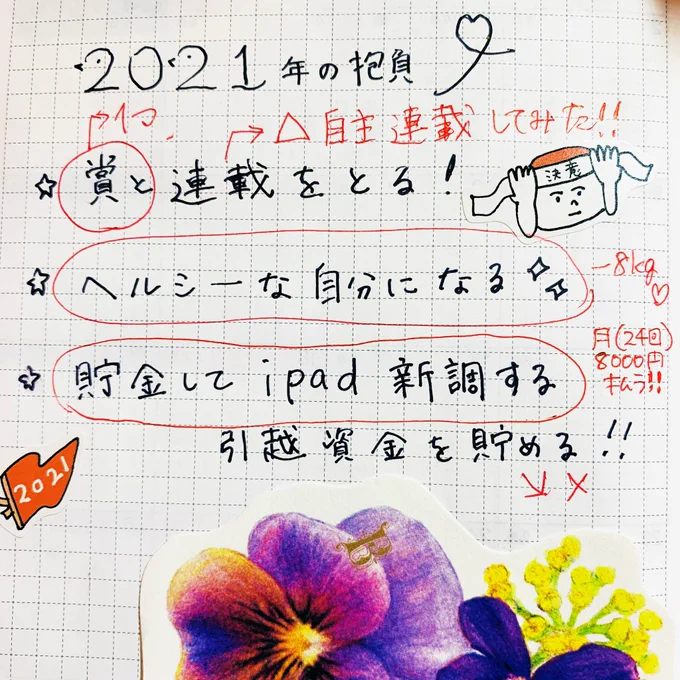 2021年の抱負
△自主連載してみた!!
賞と連載をとる!
決意
ヘルシーな自分になる
-8kg
貯金してipad新調する
月(24回)
8000円
キムラ!!
引越資金を貯める!!
×
2021